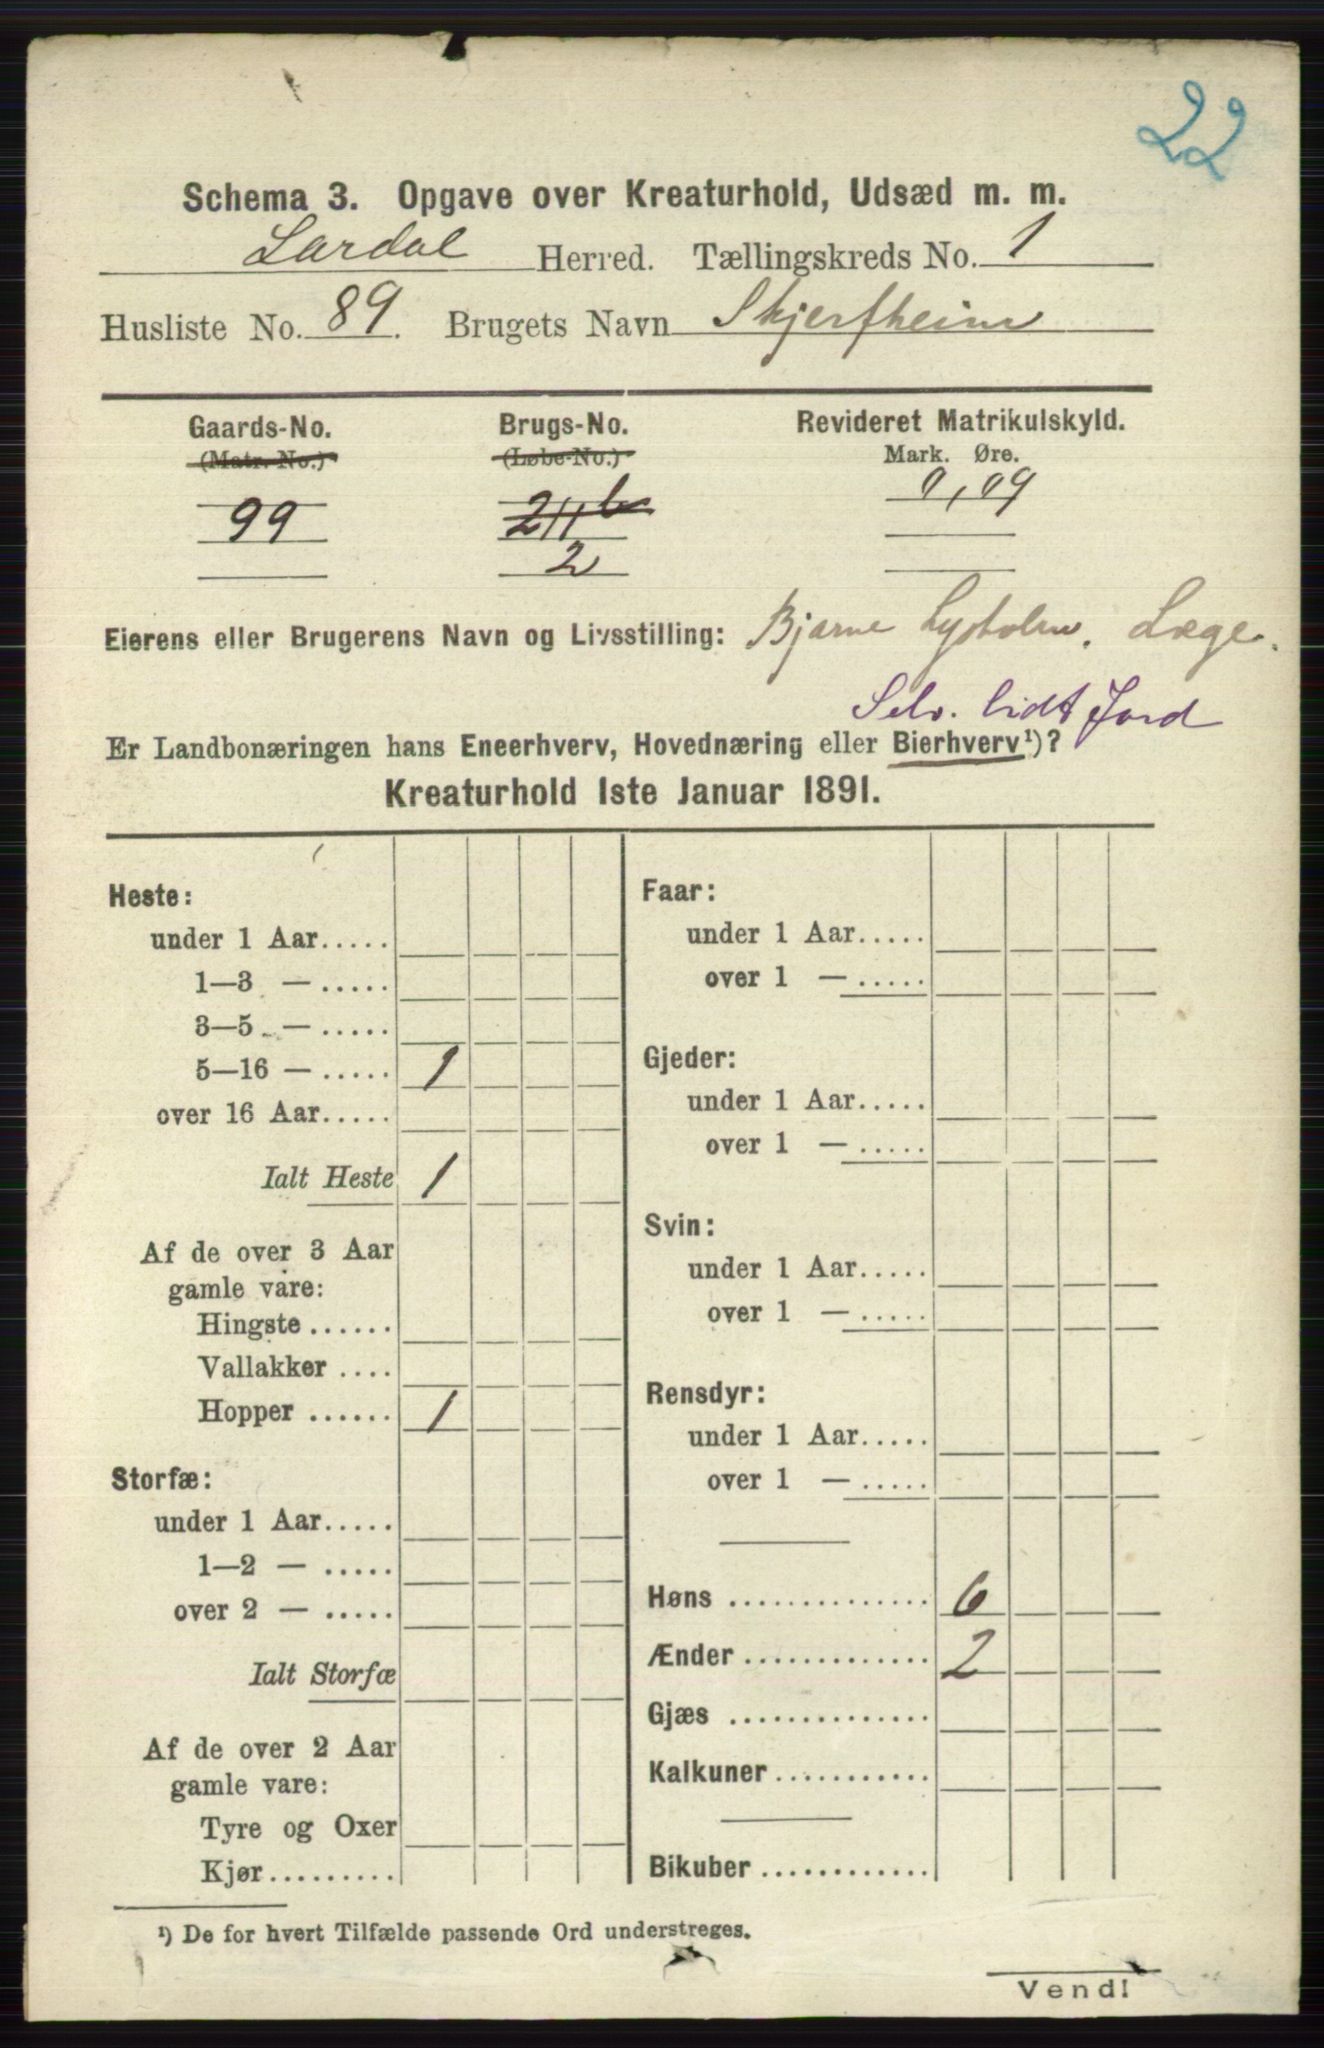 22
Schema 3. Opgave over Kreaturhold, Udsæd m. m.
Lardal Herred. Tællingskreds No. 1
Husliste No. 89. Brugets Navn Skjerfheim
Gaards-No. Brugs-No. Revideret Matrikulskyld.
(Matr. No.) (Løbe-No.) Mark. Øre.
99 211b 0,09
2
Eierens eller Brugerens Navn og Livsstilling: Bjarne Lysholm. Læge.
Selv. lidt Jord
Er Landbonæringen hans Eneerhverv, Hovednæring eller Bierhverv¹)?
Kreaturhold 1ste Januar 1891.
Heste:
under 1 Aar.....
1—3 — .....
3—5 — .....
5—16 — ..... 1
over 16 Aar.....
Ialt Heste 1
Af de over 3 Aar
gamle vare:
Hingste ......
Vallakker ....
Hopper ...... 1
Storfæ:
under 1 Aar.....
1—2 — .....
over 2 — .....
Ialt Storfæ
Af de over 2 Aar
gamle vare:
Tyre og Oxer
Kjør.........
Faar:
under 1 Aar.....
over 1 — .....
Gjeder:
under 1 Aar.....
over 1 — .....
Svin:
under 1 Aar.....
over 1 — .....
Rensdyr:
under 1 Aar.....
over 1 — .....
Høns .............. 6
Ænder ............. 2
Gjæs ..............
Kalkuner ...........
Bikuber ............
¹) De for hvert Tilfælde passende Ord understreges.
Vend!